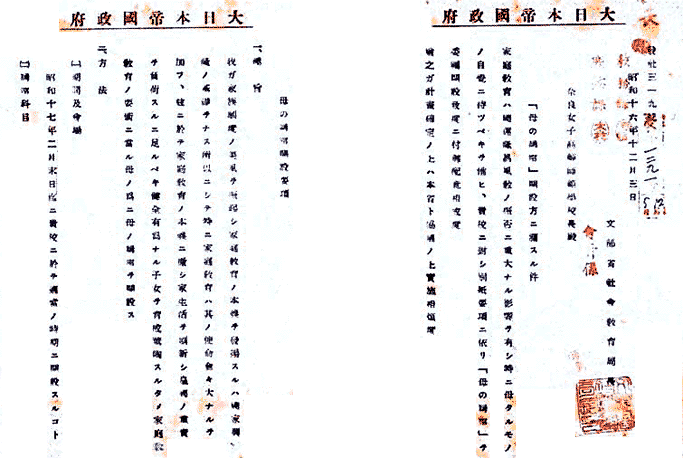 大日本帝國政府
發社三一九號
昭和十六年十二月三日
文部省社會教育局長
奈良女子高等師範學校長殿
「母の講座」開設方ニ關スル件
家庭教育ハ國運隆昌風教ノ振否ニ重大ナル影響ヲ有シ特ニ母タルモノ
ノ自覺ニ待ツベキヲ惟ヒ、貴校ニ對シ別紙要項ニ依リ「母の講座」ヲ
委嘱開設致度ニ付御配意相成度
追テ之ガ計畫確定ノ上ハ本省ト協議ノ上實施相煩度
大日本帝國政府
母の講座開設要項
一、趣旨
我ガ家族制度ノ美風ヲ振起シ家庭教育ノ本義ヲ發揚スルハ國家興
隆ノ基礎ヲナス所以ニシテ特ニ家庭教育ハ其ノ使命愈々大ナルヲ
加フ、茲ニ於テ家庭教育ノ本義ニ徹シ家生活ヲ刷新シ皇國ノ重責
ヲ負荷スルニ足ルベキ健全有爲ナル子女ヲ育成薫陶スルタメ家庭
教育ノ要衝ニ當ル母ノ爲ニ母の講座ヲ開設ス
二、方法
(一)期間及會場
昭和十七年二月末日迄ニ貴校ニ於テ適當ノ時期ニ開設スルコト
(二)講座科目